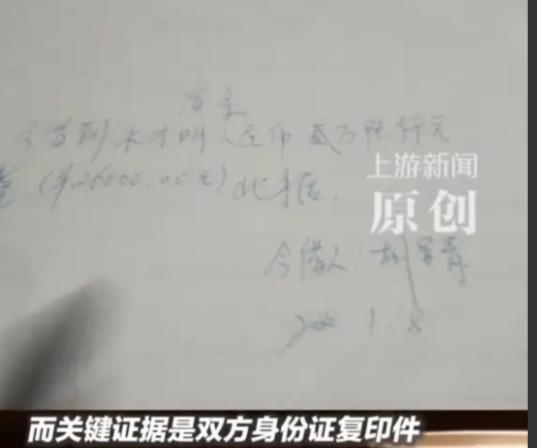 今借到朱才明人民币贰万陆仟元
(¥26000.00元)此据.
上游新闻
原创
今借人:胡
1.8
而关键证据是双方身份证复印件